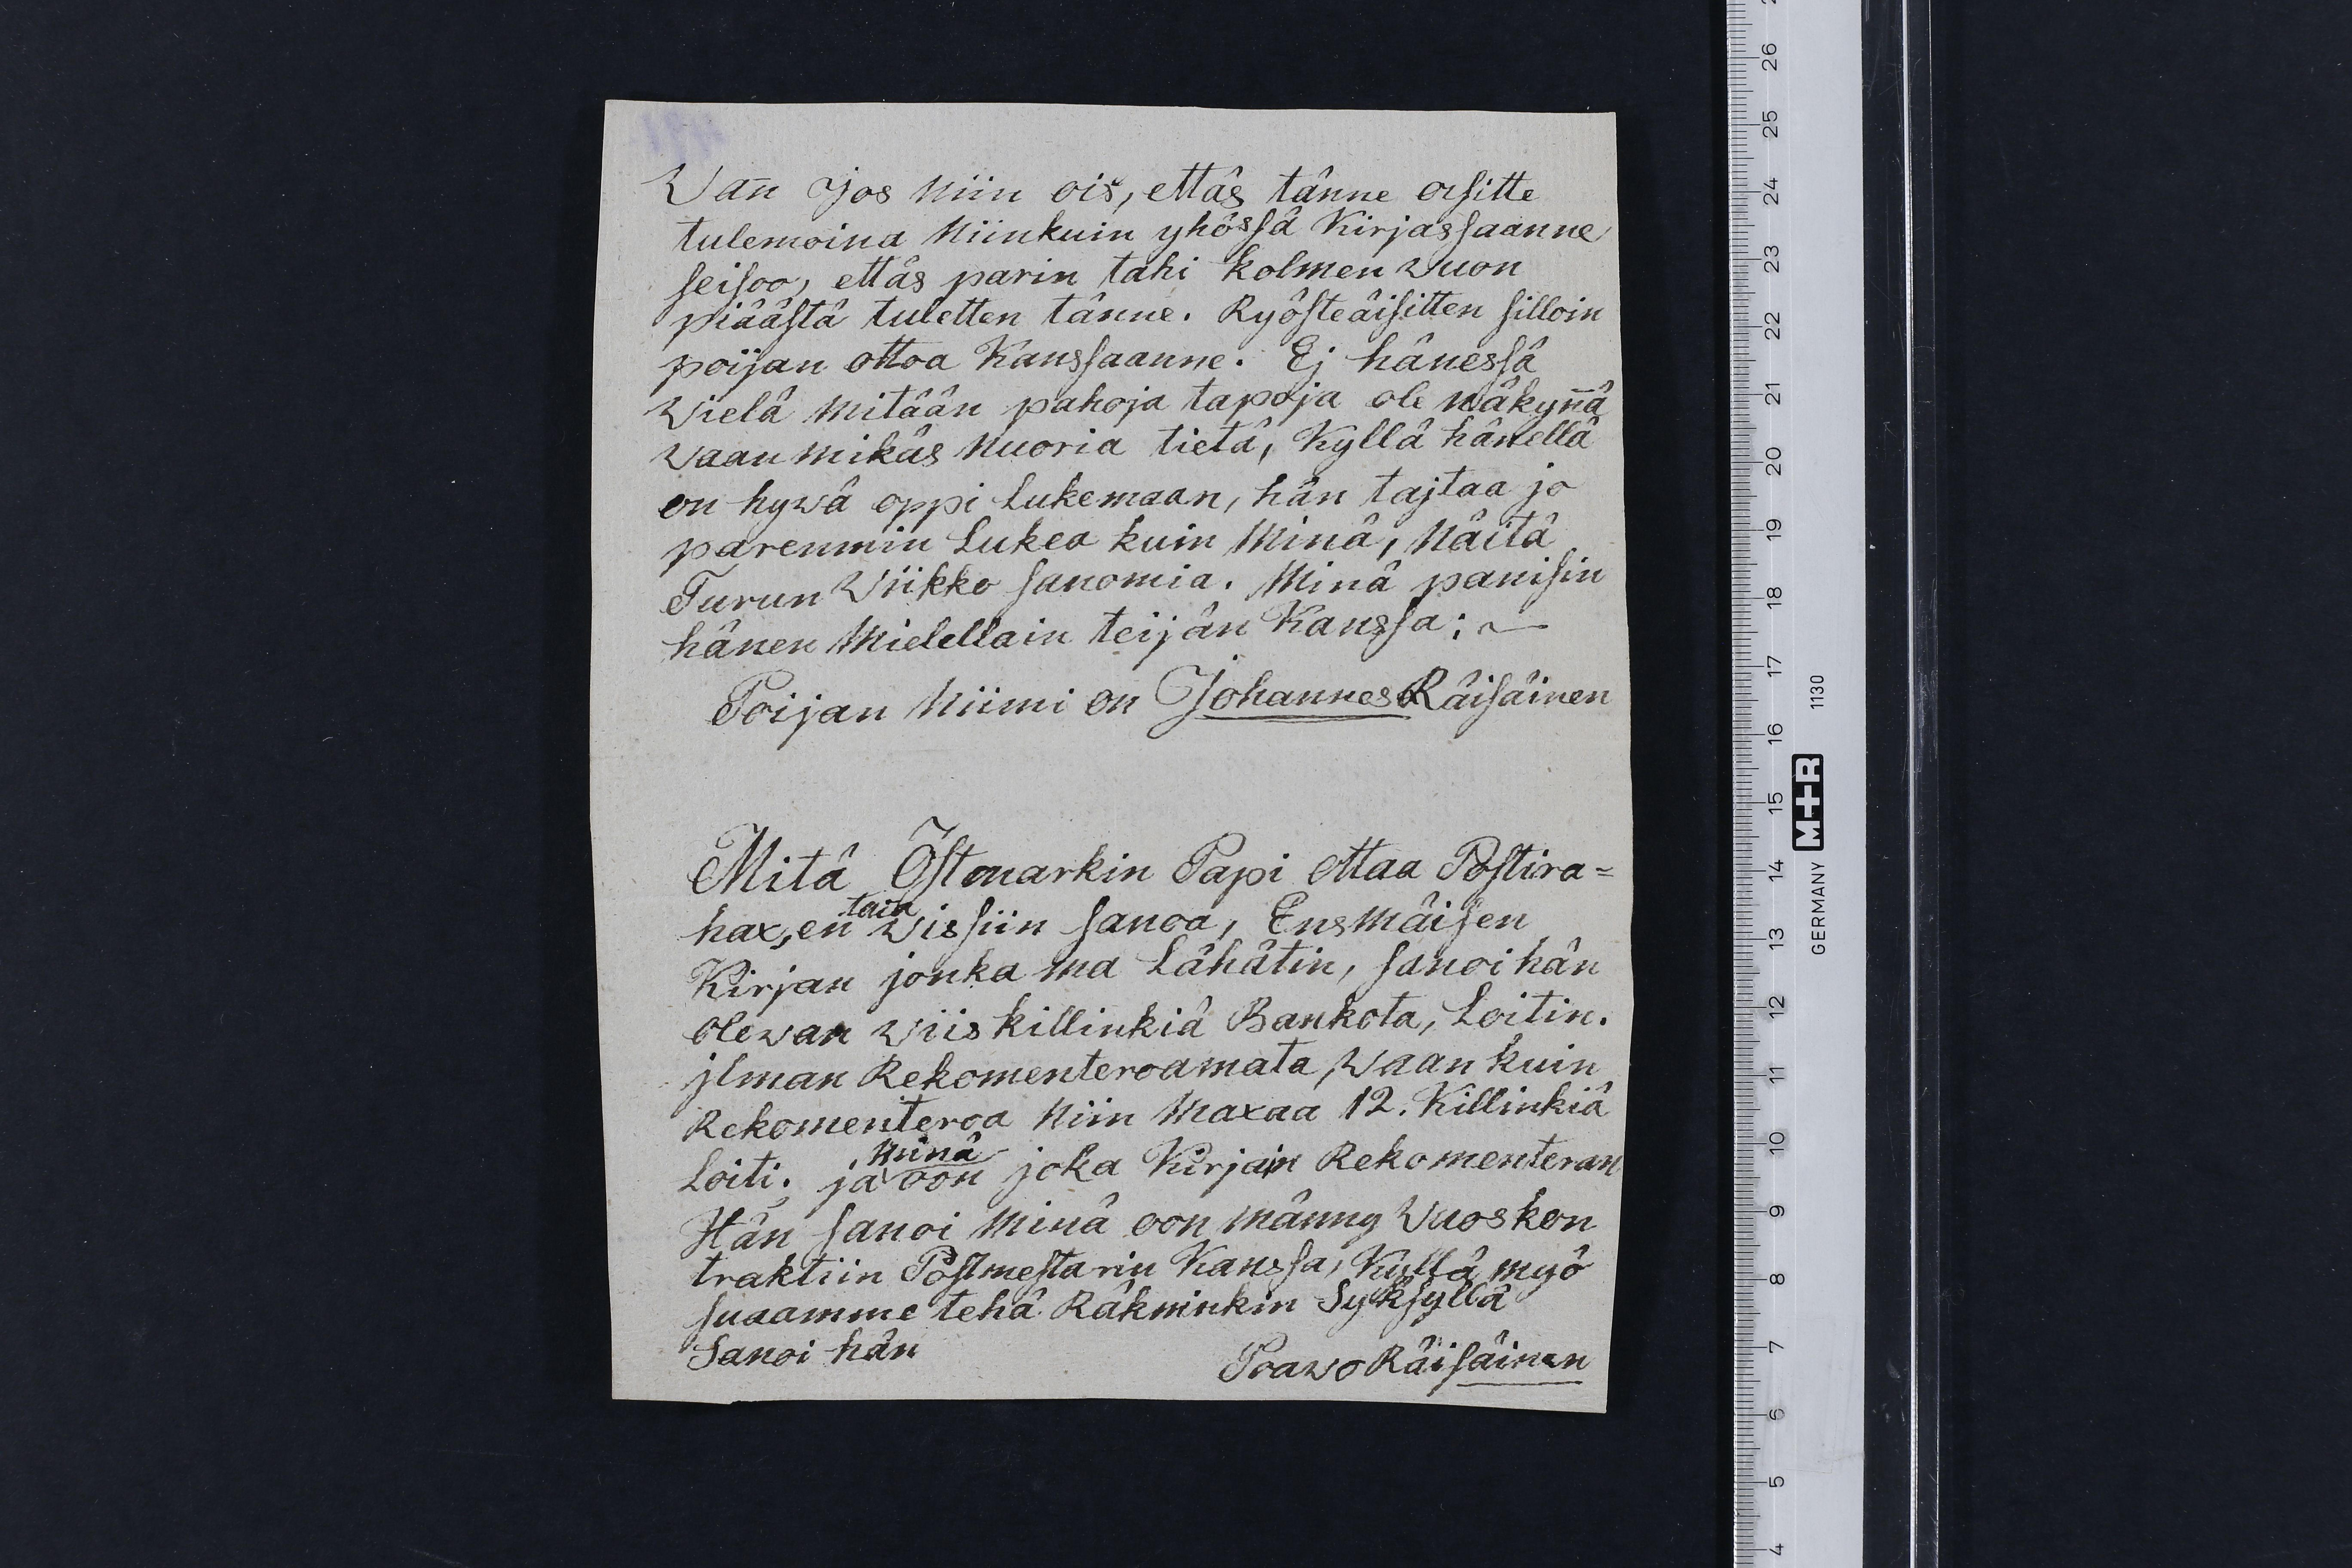 Wañ Jos Niin ois, ettäs tänne oisitte
tulemoina Niinkuin yhössä Kirjassaanne
seisoo, ettäs parin tahi kolmen wuon
piäästä tuletten tänne. Ryösteäisitten silloin
poijan ottoa Kanssaanne. Ej hänessä
Wielä Mitään pahoja tapoja ole Näkyñä
Waan Mikäs Nuoria tietä, Kyllä hänellä
on hywä oppi Lukemaan, hän tajtaa jo
parenmin Lukea kuin Minä, Näitä
Turun Wiikko sanomia. Minä panisin
hänen Mielellain teijän Kanssa: ~
Poijan Niimi on Johannes Räisäinen
Mitä Östmarkin Papi ottaa Postira=
hax, en taia Wissiin sanoa, Ensmäisen
Kirjan jonka ma Lähätin, sanoi hän
olewan Wiis killinkiä Bankota, Loitin.
jlman Rekomenteroamata, Waan kuin
Rekomenteroa Niin Maxaa 12. Killinkiä
Loiti; ja Minä oon joka Kirjain Rekomenteran
Hän sanoi Minä oon männy Wuoskon
traktiin Postmestarin Kanssa, Kyllä myö
suaamme tehä Räkninkin Syksyllä
Sanoi hän
Poawo Räisäinen
GERMANY M+R 1130
26
25
24
23
22
21
20
19
18
17
16
15
14
13
12
11
10
9
8
7
6
5
4